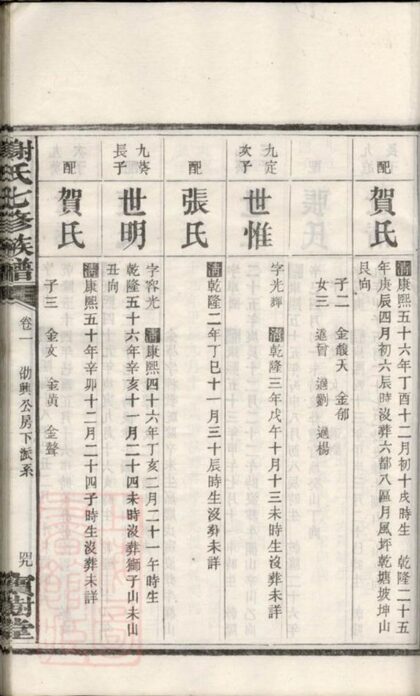 配
賀氏
清康熙五十六年丁酉十二月初十戌時生 乾隆二十五
年庚辰四月初六辰時沒葬六都八區月風坪乾塘坡坤山
艮向
子二 金馥天 金郁
女三 適曾 適劉 適楊
九定
次子
世惟
字光輝 清乾隆三年戊午十月十三未時生沒葬未詳
配
張氏
清乾隆二年丁巳十一月三十辰時生沒葬未詳
九葵
長子
世明
字容光 清康熙四十六年丁亥二月二十一午時生
乾隆五十六年辛亥十一月二十四未時沒葬獅子山未山
丑向
配
賀氏
清康熙五十年辛卯十二月二十四子時生沒葬未詳
子三 金文 金黃 金聲
謝氏七修族譜
卷一 劭興公房下派系
寶樹堂